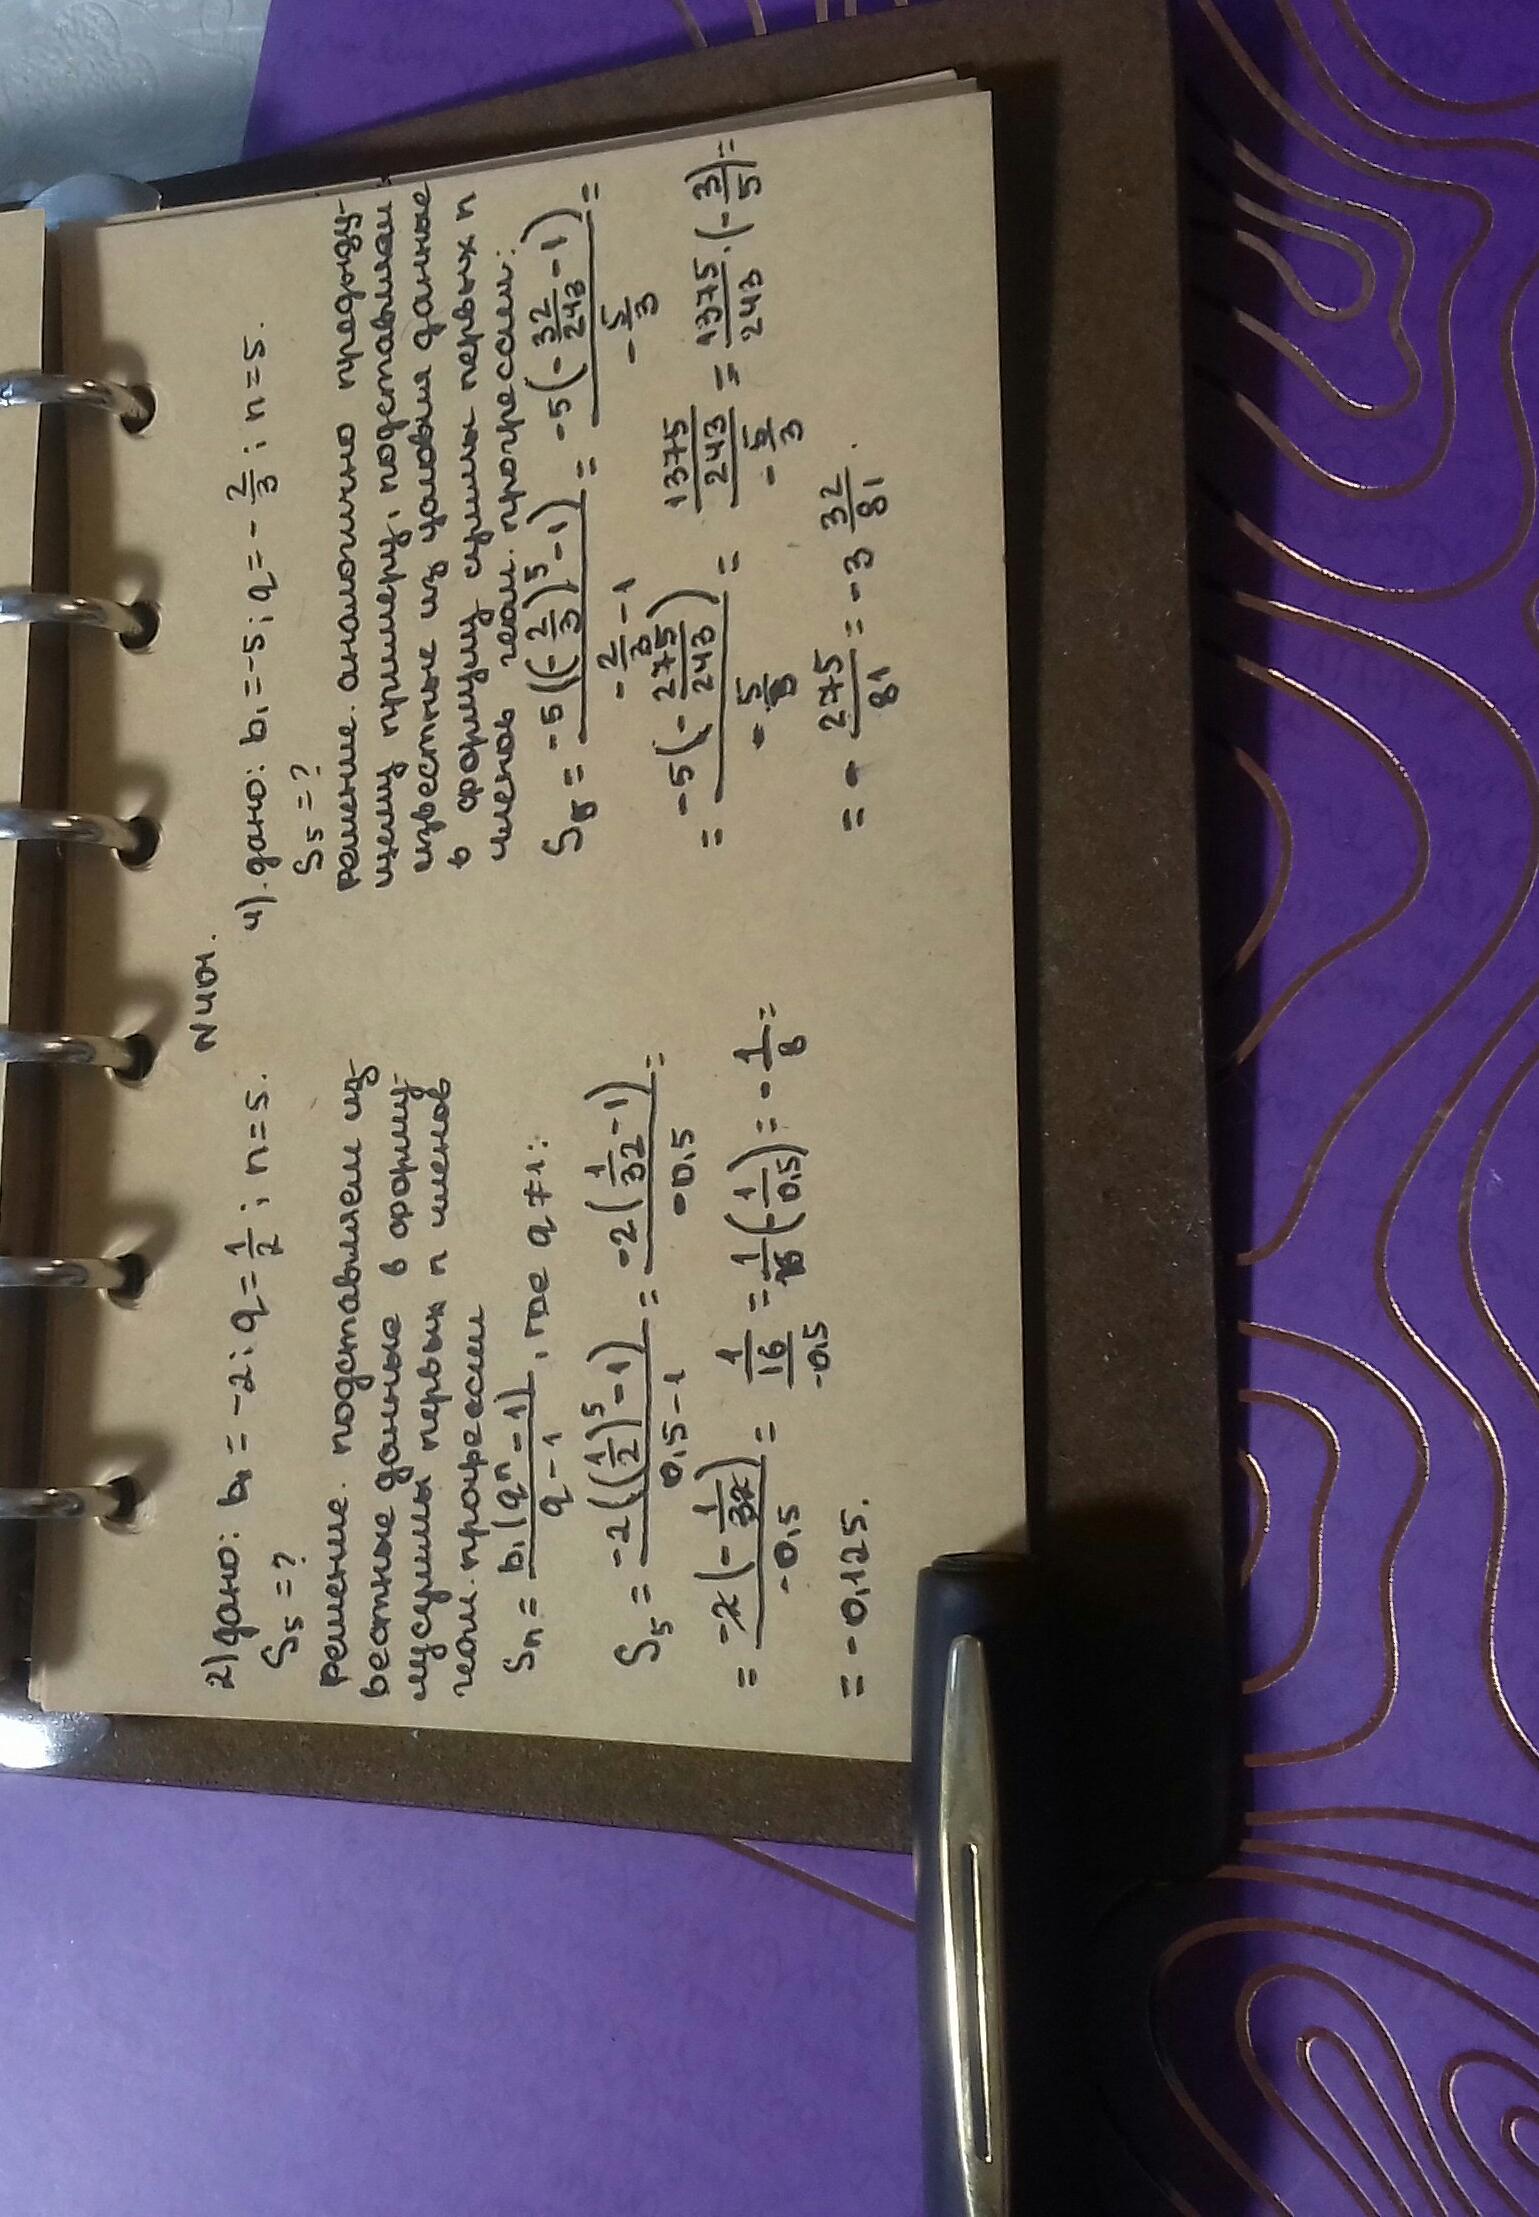 N 401.
2) дано: b₁ = -2; q = 1/2; n = 5.
S₅ = ?
решение. подставляем из-
вестные данные в форму-
лу суммы первых n членов
геом. прогрессии
Sn = b₁(qⁿ - 1)/(q - 1), где q ≠ 1:
S₅ = -2((1/2)⁵ - 1)/(0,5 - 1) = -2(1/32 - 1)/(-0,5) =
= -2(-1/32)/(-0,5) = (1/16)/(-0,5) = 1/16(-1/0,5) = -1/8 =
= -0,125.
4). дано: b₁ = -5; q = -2/3; n = 5.
S₅ = ?
решение. аналогично предыду-
щему примеру, подставляем
известные из условия данные
в формулу суммы первых n
членов геом. прогрессии:
S₅ = -5((-2/3)⁵ - 1)/(-2/3 - 1) = -5(-32/243 - 1)/(-5/3) =
= -5(-275/243)/(-5/3) = (1375/243)/(-5/3) = 1375/243 · (-3/5) =
= - 275/81 = -3 32/81.